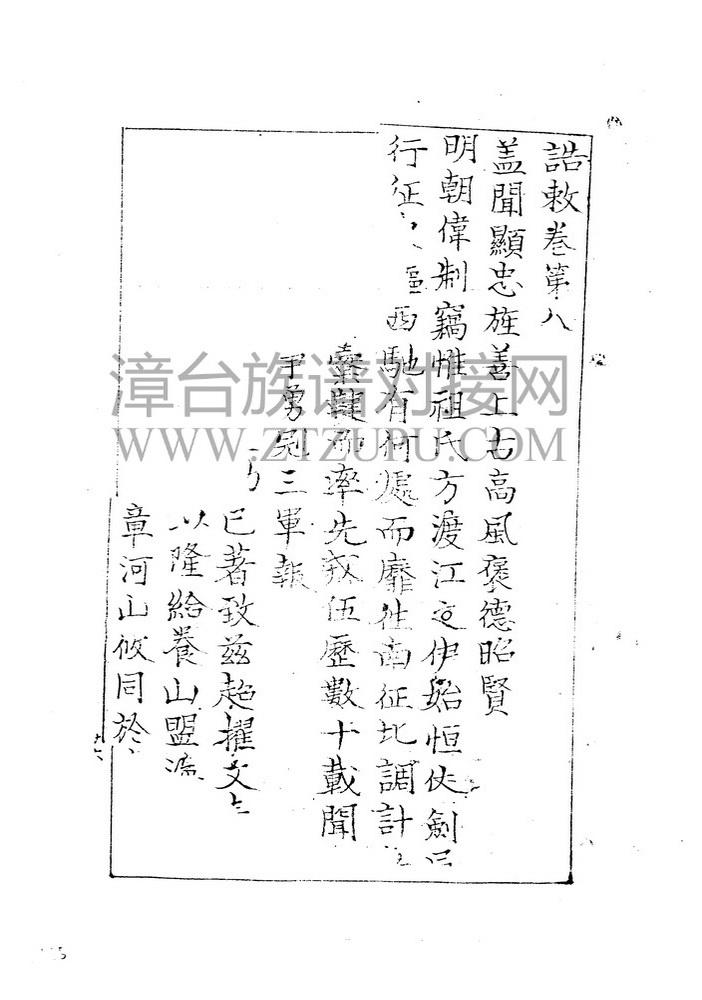 誥敕卷第八
盖聞顯忠旌善上古高風褒德昭賢
明朝偉制竊惟祖氏方渡江之伊始恒仗劍
行征 區西馳有何處而靡往南征北調計
櫜鞬而率先戎伍歷數十載聞
勇冠三軍報
已著致茲超擢文
以隆給養山盟
章河山攸同於
漳台族谱对接网
WWW.ZTZUPU.COM